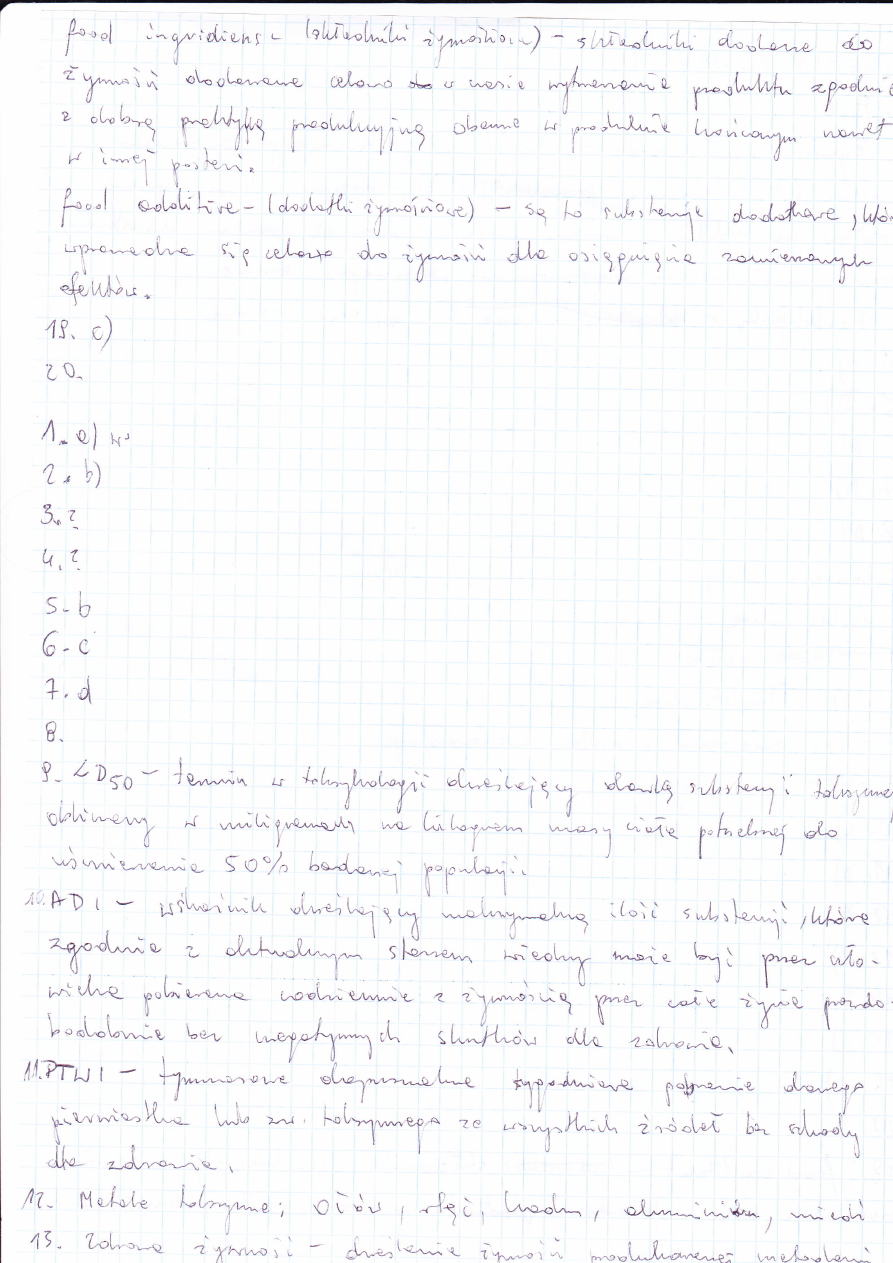 food ingridiens - (składniki żymościowe) - składniki dodane do
żymości dodawane celowo do w czasie wytwarzania produktu zgodnie
z dobrą praktyką produkcyjną obecne w produkcie końcowym nawet
w innej postaci.
food additive - (dodatki żymościowe) - są to substancje dodatkowe, któr
wprowadza się celowo do żymości dla osiągnięcia zamierzonych
efektów.
19. c)
20.
1. a) w
2. b)
3. ?
4. ?
5 - b
6 - c
7. d
8.
9. LD50 - termin w toksykologii określający dawkę substancji toksyczne
obliczany w miligramach na kilogram masy ciała potrzebnej do
uśmiercenia 50% badanej populacji.
10. ADI - wskaźnik określający maksymalną ilość substancji, która
zgodnie z aktualnym stanem wiedzy może być przez czło-
wieka pobierana codziennie z żywnością przez całe życie prawdo-
bodobnie bez negatywnych skutków dla zdrowia.
11. PTWI - tymczasowe dopuszczalne tygodniowe pobranie danego
pierwiastka lub zw. toksycznego ze wszystkich źródeł bez szkody
dla zdrowia.
12. Metale toksyczne; ołów, rtęć, kadm, aluminium, miedź
13. Zdrowa żywność - określenie żywności produkowanej metodami